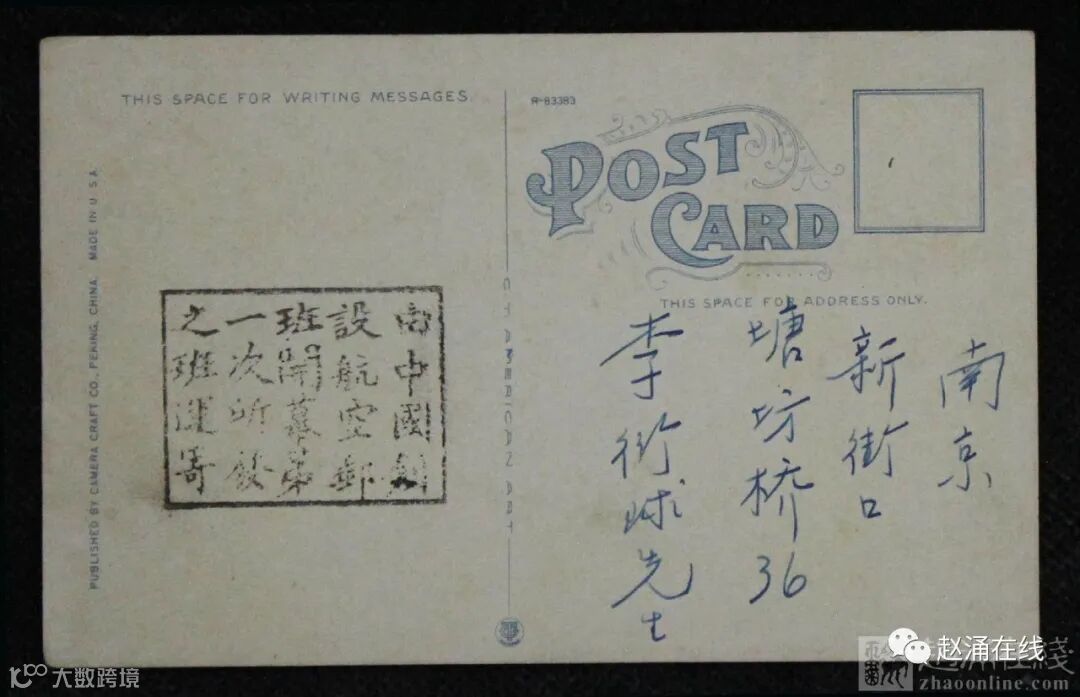 THIS SPACE FOR WRITING MESSAGES.
R-83383
POST
CARD
THIS SPACE FOR ADDRESS ONLY.
南京
新街口
塘坊桥36
李衍球先生
C.T. AMERICAN ART
由中國創
設航空郵
班開幕第
一次所發
之班運寄
PUBLISHED BY CAMERA CRAFT CO., PEKING, CHINA. MADE IN U.S.A.
大数跨境
赵涌在线
zhaoonline.com